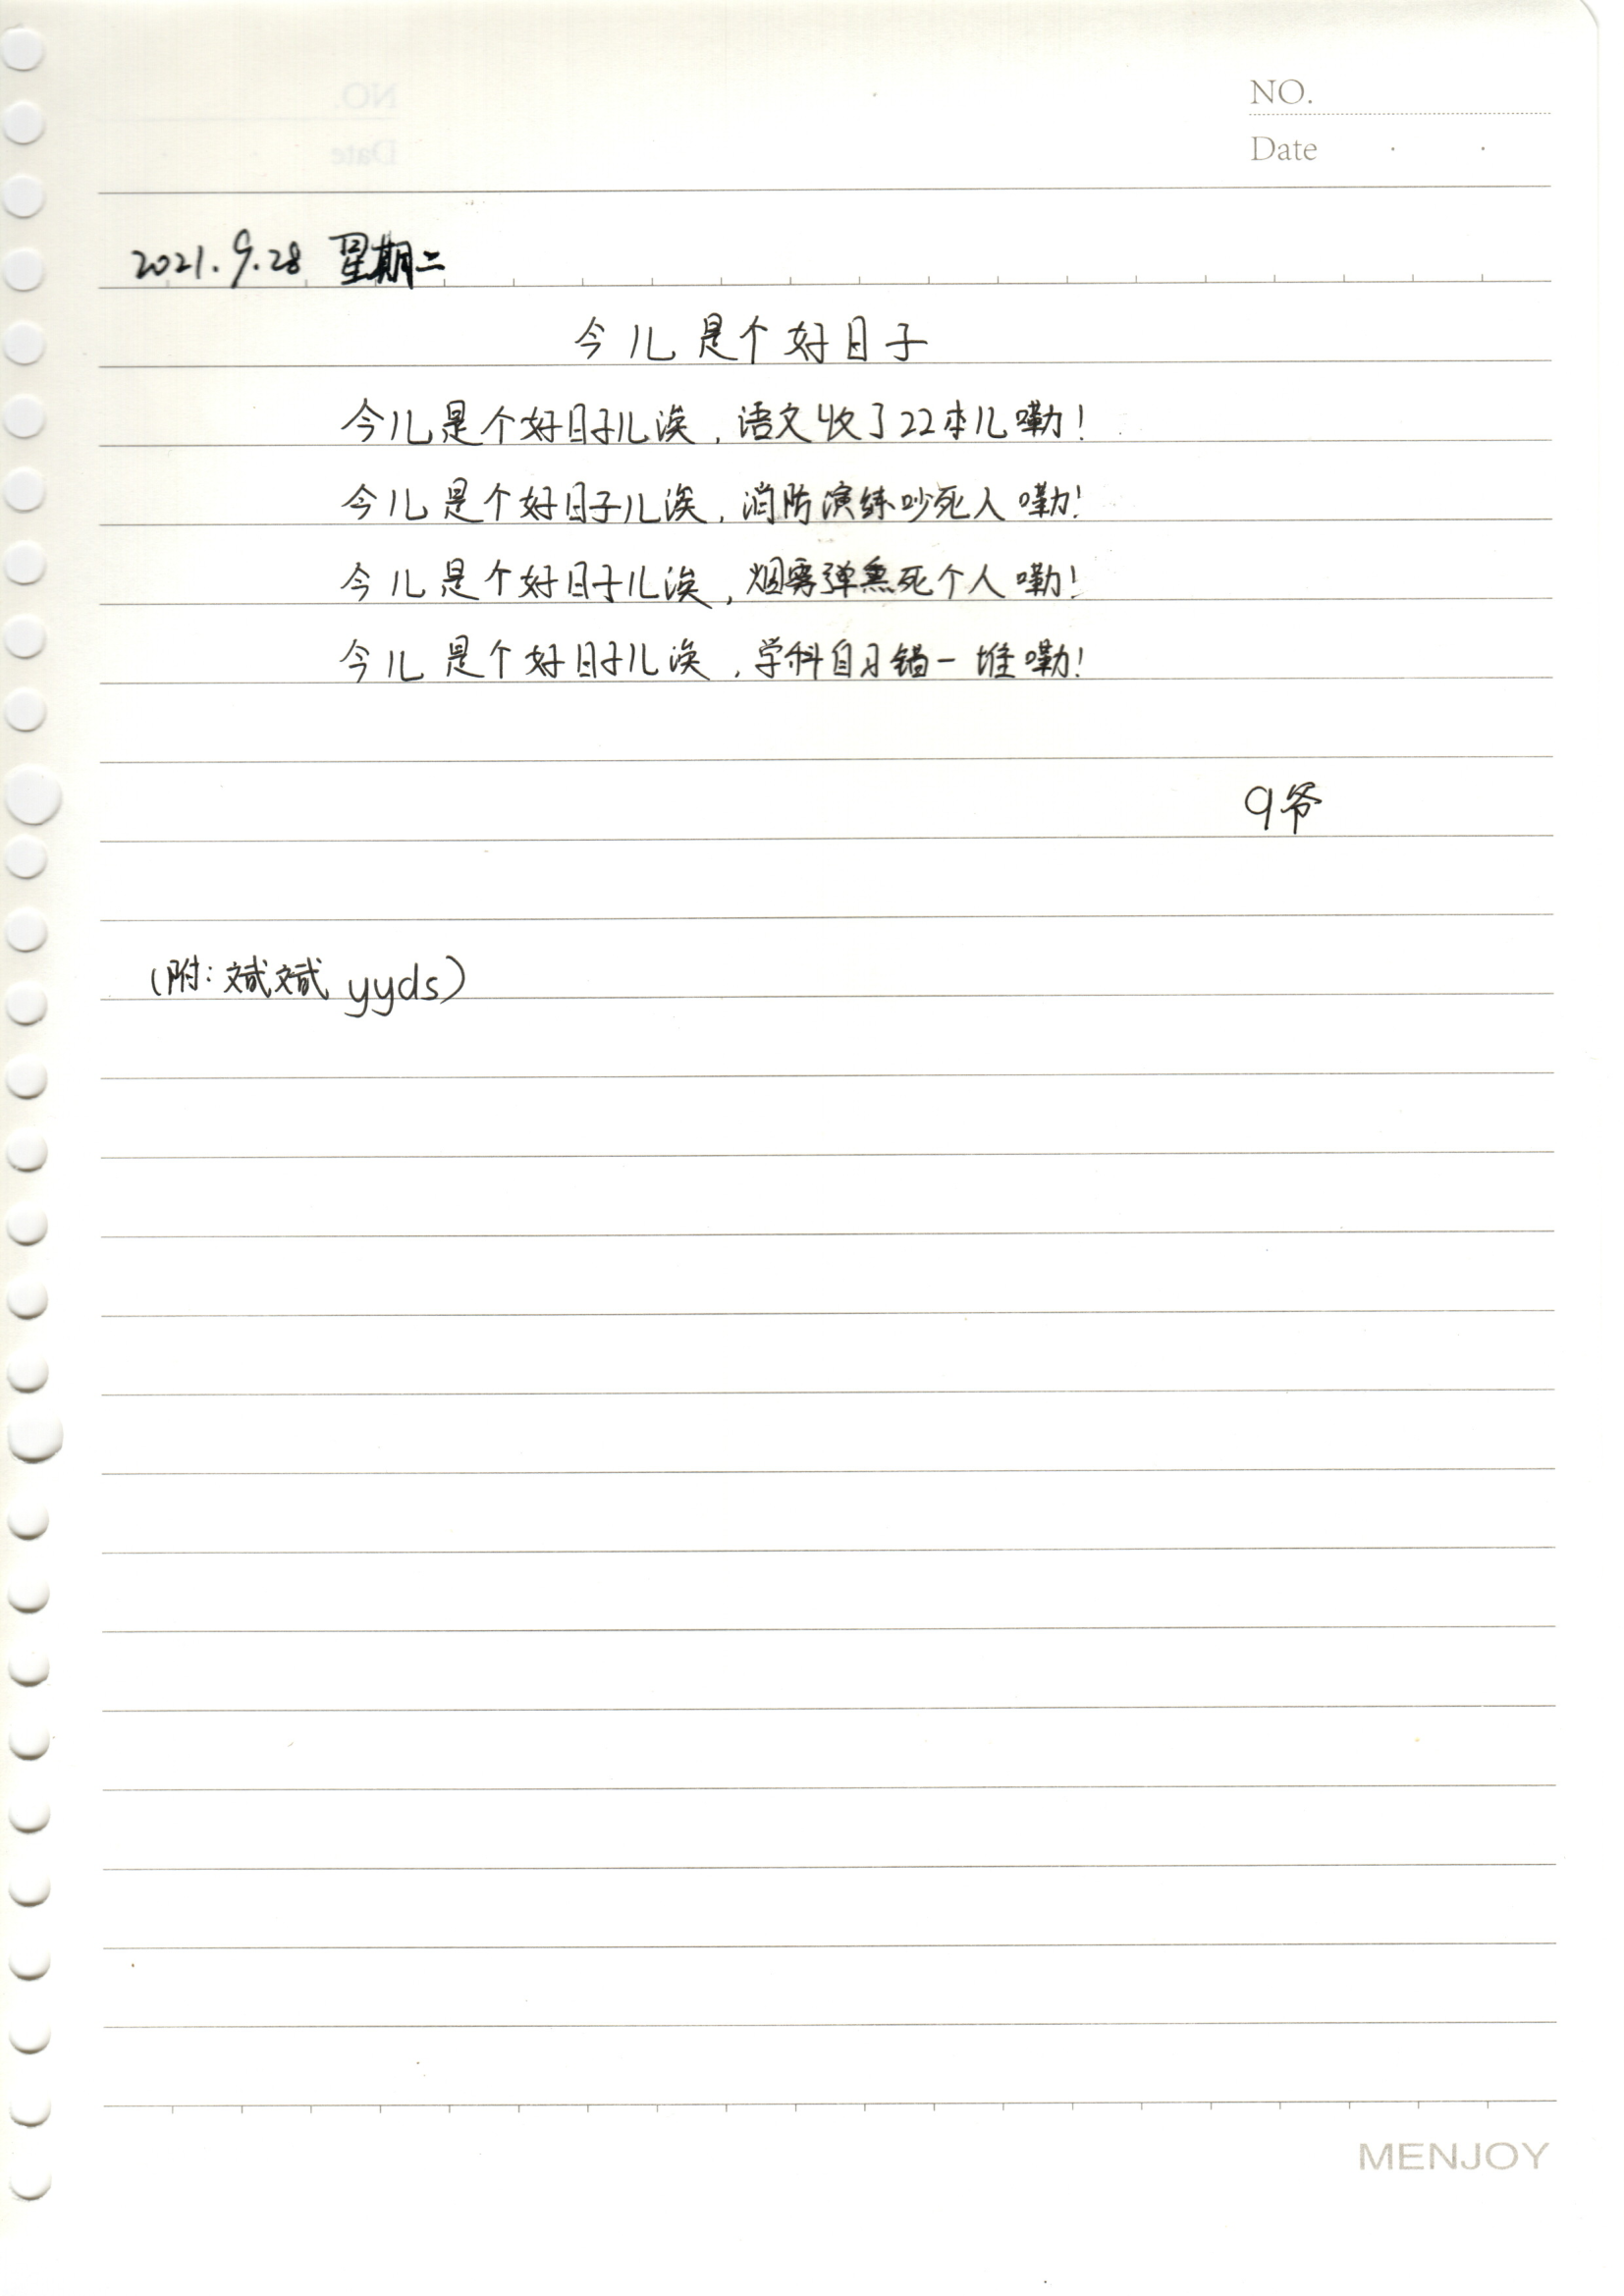 NO.
Date
2021.9.28 星期二
今儿是个好日子
今儿是个好日子儿涘，语文收了22本儿嘞！
今儿是个好日子儿涘，消防演练吵死人嘞！
今儿是个好日子儿涘，烟雾弹熏死个人嘞！
今儿是个好日子儿涘，学科自习错一堆嘞！
9爷
（附：斌斌 yyds）
MENJOY